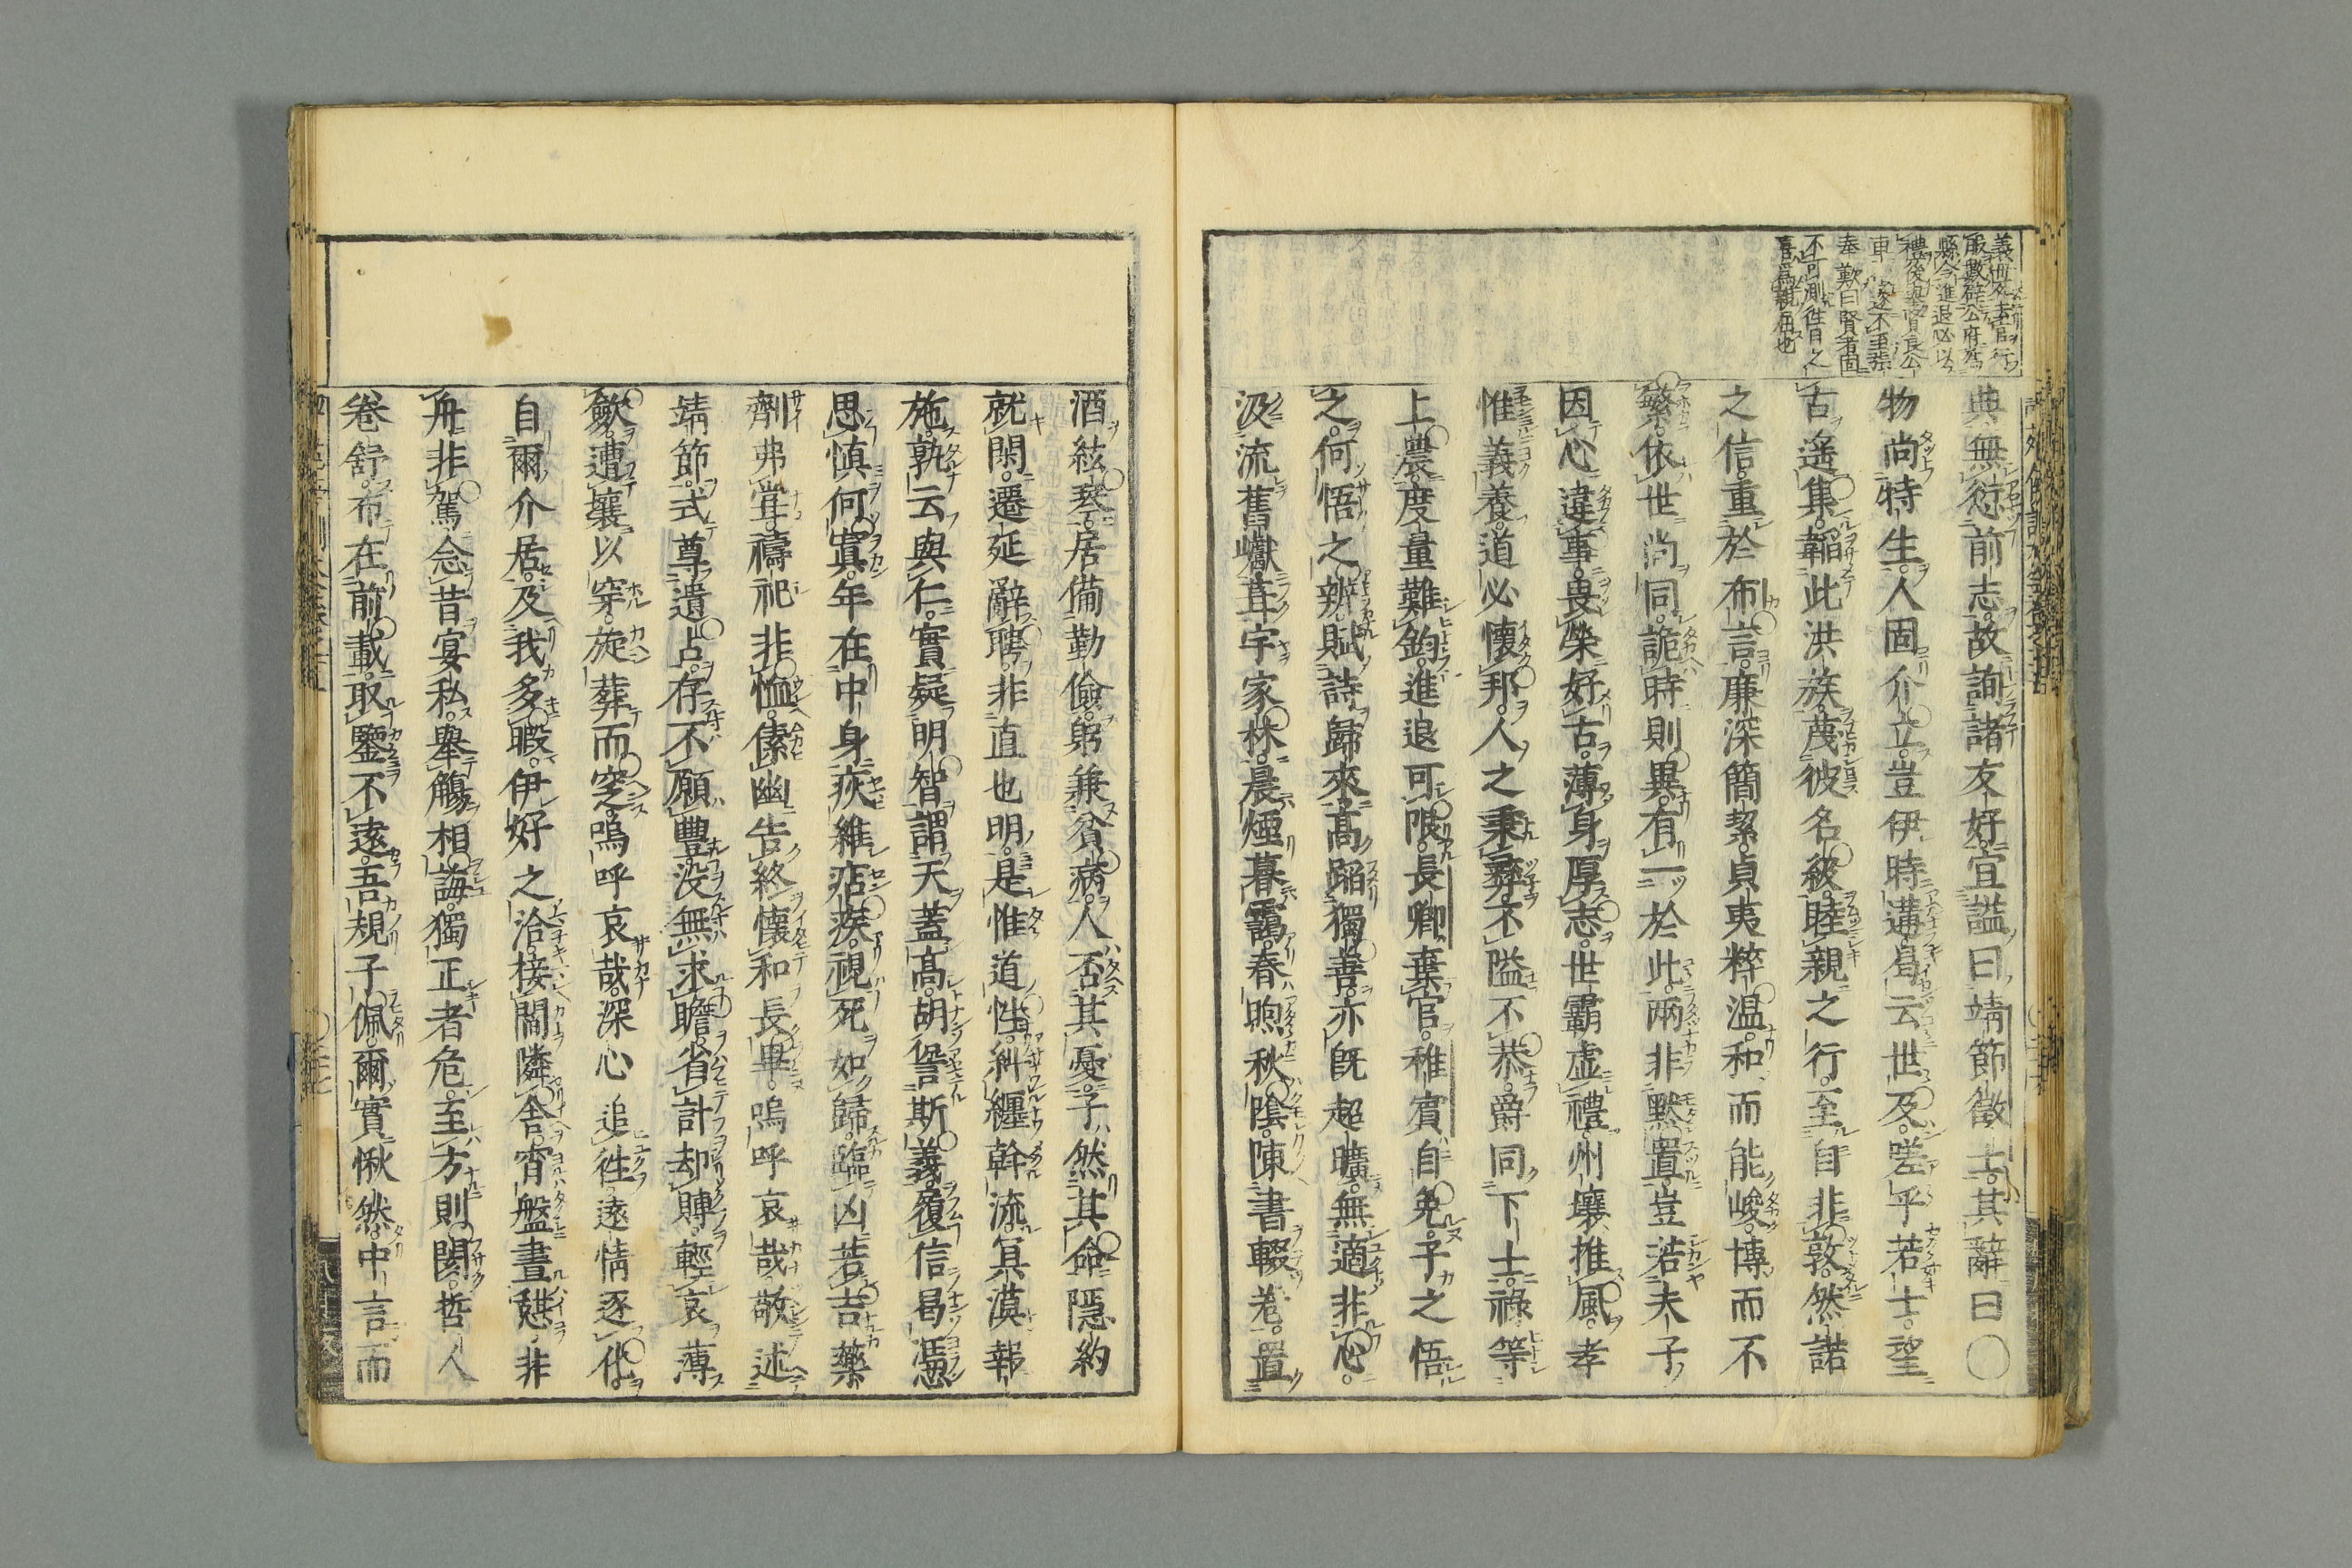 義母死去官行
服數辟公府爲
縣令進退必以
禮後擧賢良公
車
遂不至張
奉歎曰賢者固
不可測往日之
喜爲親屈也
典無愆前志故詢諸友好宜謚曰靖節徵士其辭曰〇
物尚特生人固介立豈伊時遘曷云世及嗟乎若士望
古遥集韜此洪族蔑彼名級睦親之行至自非敦然諾
之信重於布言廉深簡絜貞夷粹温和而能峻博而不
繁依世尚同詭時則異有一於此兩非默置豈若夫子
因心違事畏榮好古薄身厚志世霸虚禮州壤推風孝
惟義養道必懷邦人之秉彜不隘不恭爵同下士祿等
上農度量難鈞進退可限長卿棄官稚賓自免子之悟
之何悟之辨賦詩歸來高蹈獨善亦既超曠無適非心
汲流舊巘葺宇家林晨煙暮靄春煦秋陰陳書輟卷置
酒絃琴居備勤儉躬兼貧病人否其憂子然其命隱約
就閑遷延辭聘非直也明是惟道性糾纆斡流冥漠報
施孰云與仁實疑明智謂天蓋高胡諐斯義履信曷憑
思慎何寘年在中身疢維痁疾視死如歸臨凶若吉藥
劑弗甞禱祀非恤傃幽告終懷和長畢嗚呼哀哉敬述
靖節式尊遺占存不願豐没無求贍省計却賻輕哀薄
斂遭壤以穿旋葬而窆嗚呼哀哉深心追徃遠情逐化
自爾介居及我多暇伊好之洽接閻隣舍宵盤晝憇非
舟非駕念昔宴私舉觴相誨獨正者危至方則閡哲人
卷舒布在前載取鑒不遠吾規子佩爾實愀然中言而